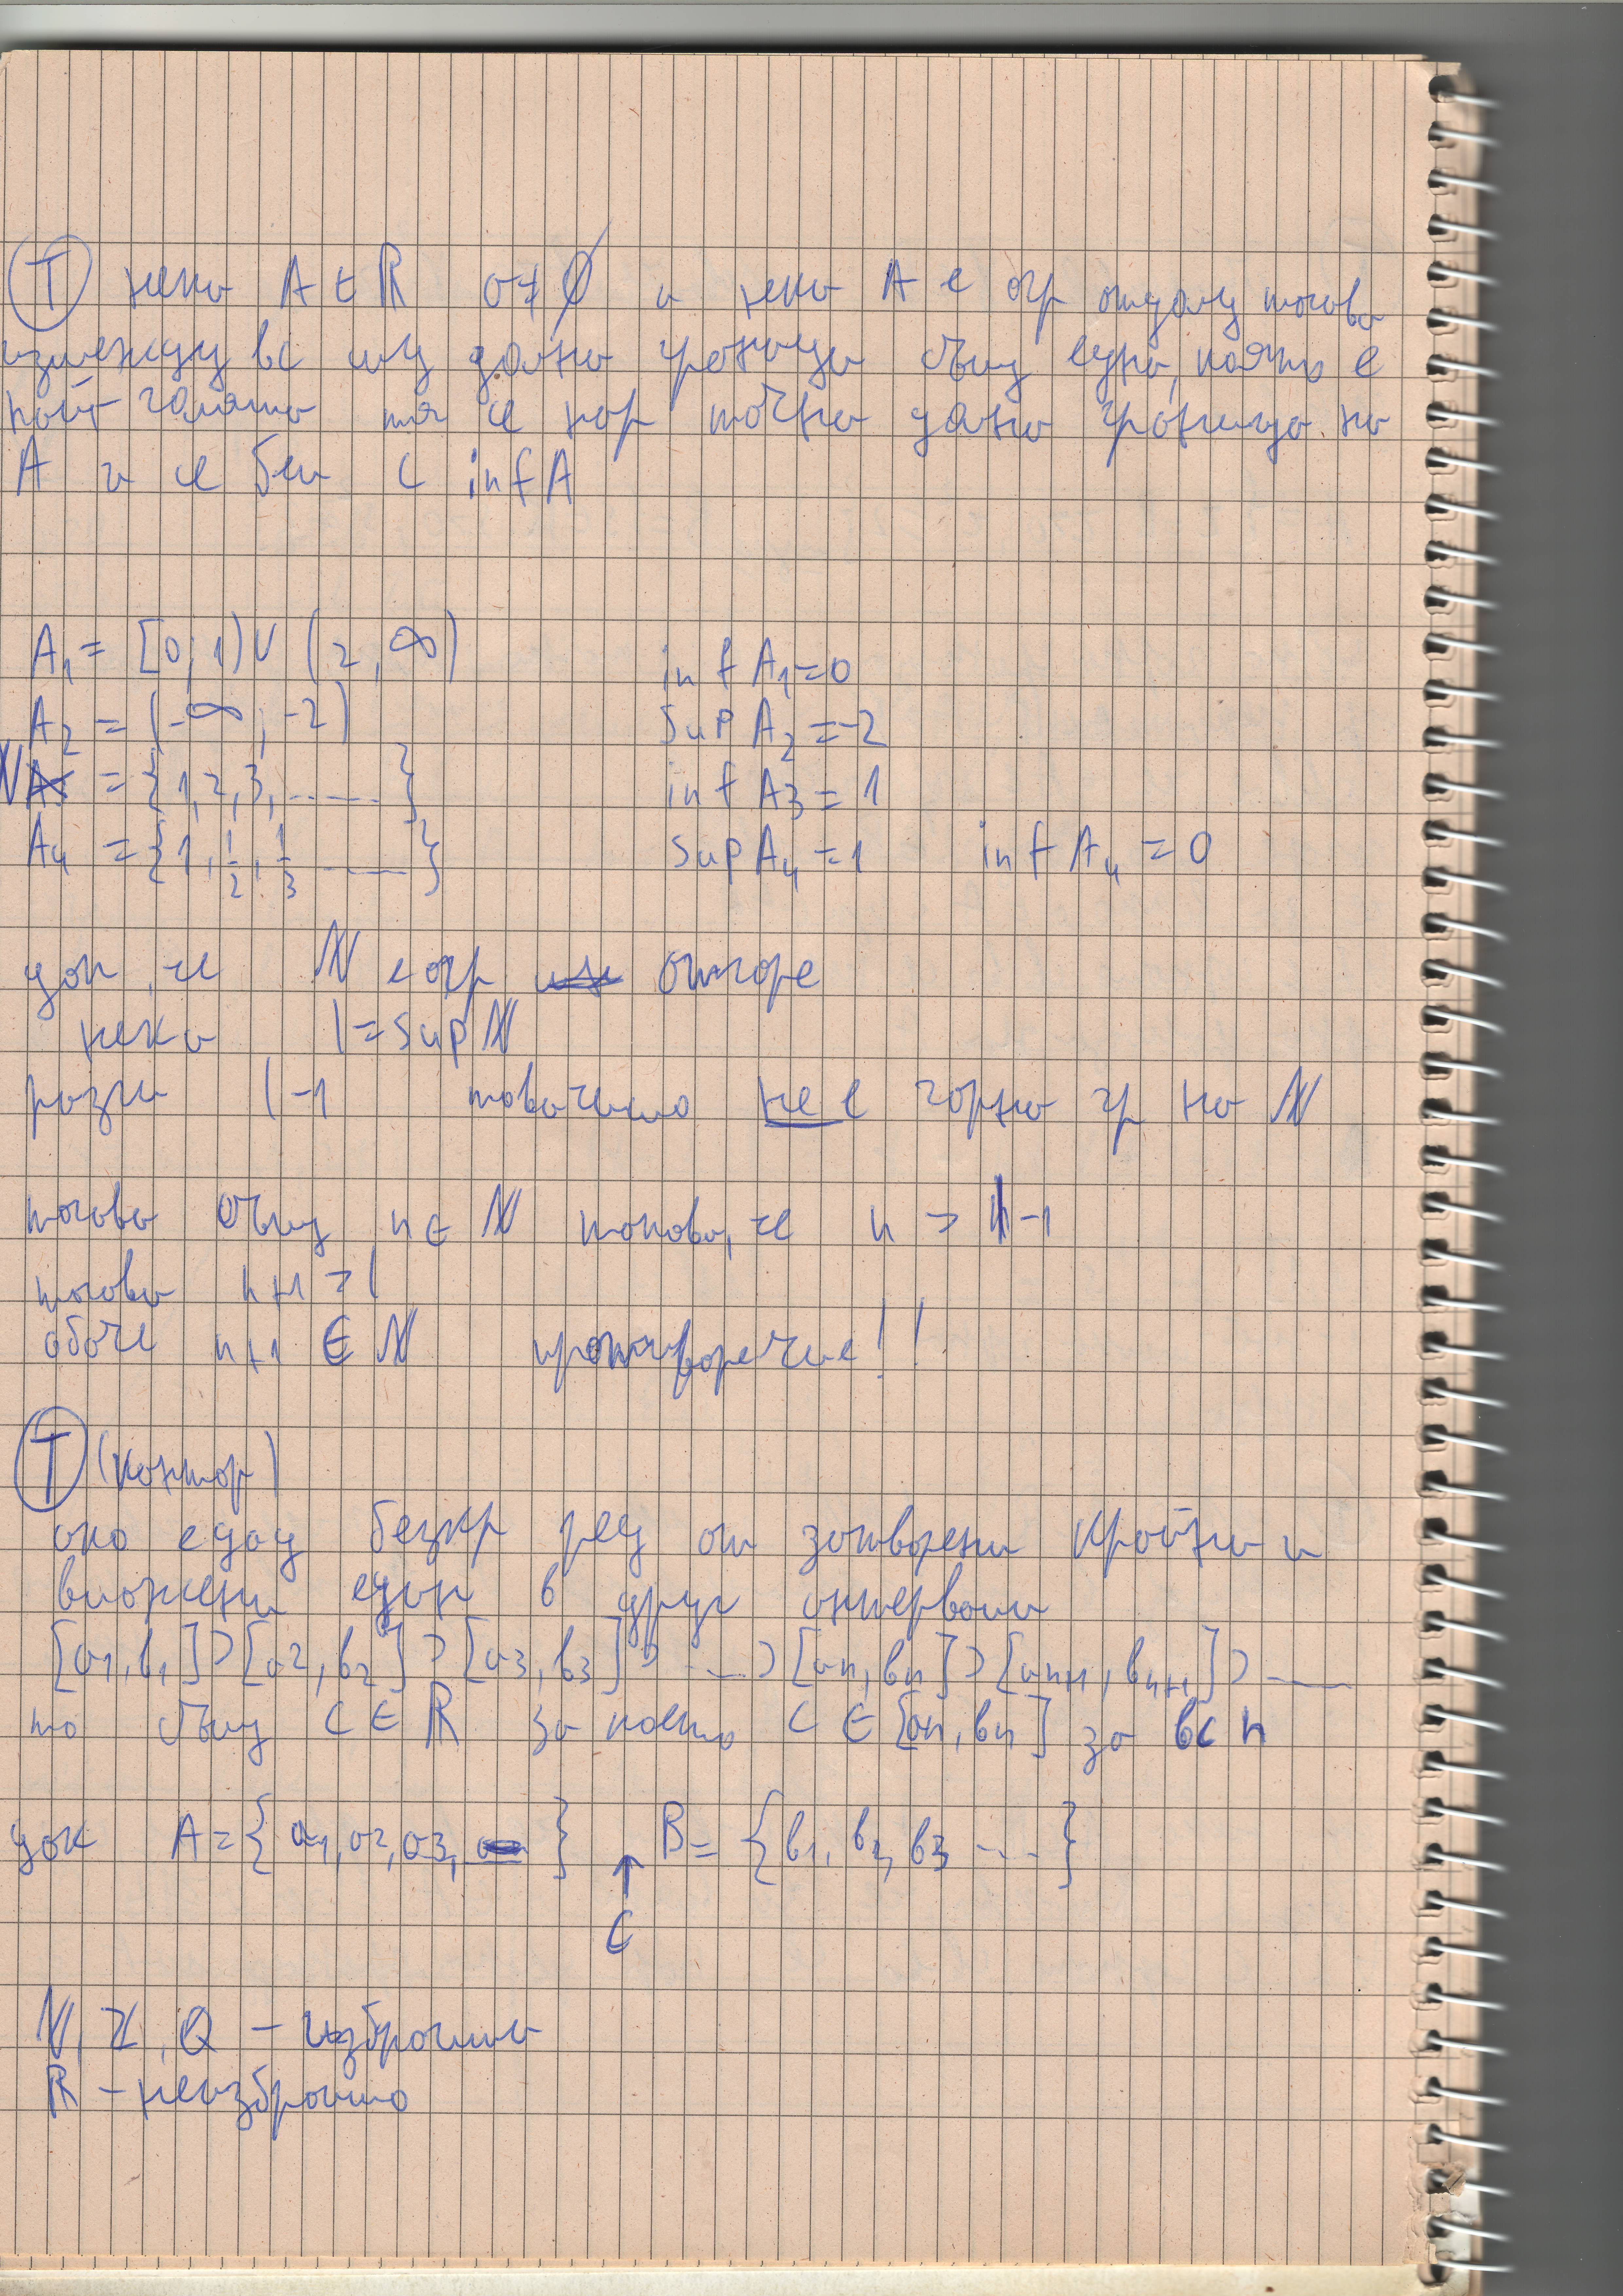 Т нека A ∈ ℝ a ≠ ∅ и нека A е огр отдолу тогава
измежду вс му долни граници същ една, която е
най-голяма тя се нар точна долна граница на
A и се бел с inf A
A₁ = [0; 1) ∪ (2, ∞) inf A₁ = 0
A₂ = (-∞; -2) sup A₂ = -2
ℕ = {1, 2, 3, ......} inf A3 = 1
A₄ = {1, 1/2, 1/3 ......} sup A₄ = 1 inf A₄ = 0
доп, че ℕ е огр отгоре
нека l = sup ℕ
разгл l -1 това число не е горна гр на ℕ
тогава същ n ∈ ℕ такова, че n > l -1
тогава n+1 > l
обаче n+1 ∈ ℕ противоречие!!
Т (Кантор)
ако е дад безкр ред от затворени крайни и
вложени един в друг интервали
[a1, b1] ⊃ [a2, b2] ⊃ [a3, b3] ⊃ ... ⊃ [an, bn] ⊃ [an+1, bn+1] ⊃ ....
то същ C ∈ ℝ за което C ∈ [an, bn] за вс n
док A = {a1, a2, a3, } B = {b1, b2, b3 ...}
↑
C
ℕ, ℤ, Q – изброими
ℝ – неизброимо